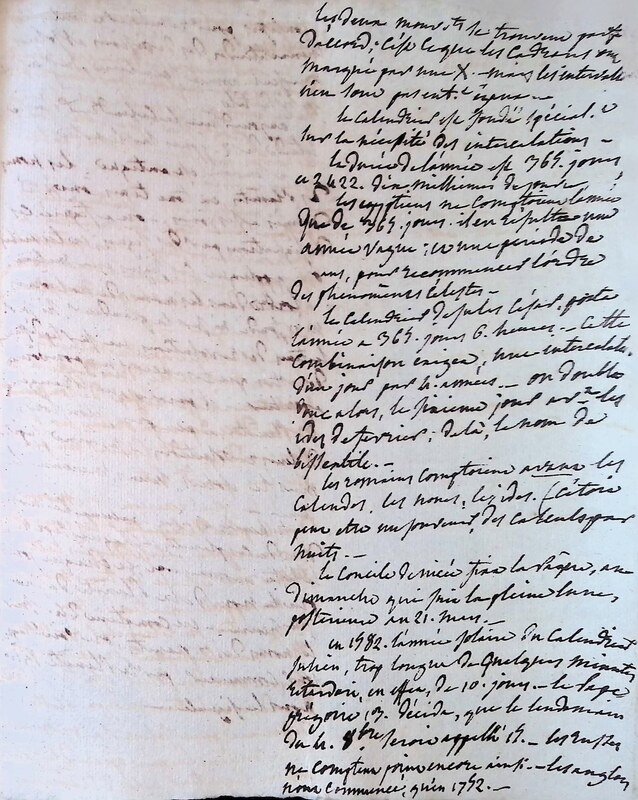 les deux mouv.ts se trouvent parf.t
d'accord; c'est ce que les cadrans ont
marqué par une X. – mais les intervalles
n'en sont pas ent.t
le calendrier est fondé spécial.t
sur la nécessité des intercalations –
la durée de l'année est 365. jours
et 2422. dix millièmes de jour
les egyptiens ne comptoient l'année
que de 365. jours. il en résultoit une
année vague; et une période de
ans, pour recommencer l'ordre
des phénomènes célestes –
le calendrier de jules césar, porte
l'année a 365. jours 6. heures. – cette
combinaison exigea, une intercalat.
d'un jour par 4. années. – on doubla
donc alors, le sixieme jour av.t les
ides de fevrier; de là, le nom de
bissextile. –
les romains comptoient avant les
calendes, les nones, les ides. (c'étoit
peut etre un souvenir, des calculs par
nuits. –
le Concile de nicée fixa la Pâque, au
dimanche qui suit la pleine lune,
postérieure au 21. mars. –
en 1582. l'année solaire du calendrier
julien, trop longue de quelques minutes
retardoit, en effet, de 10. jours – le Pape
grégoire 13. décida, que le lendemain
du 4. 8bre seroit appellé 15. – les Russes
ne comptent point encore ainsi. – les anglois
n'ont commencé, qu'en 1752. –